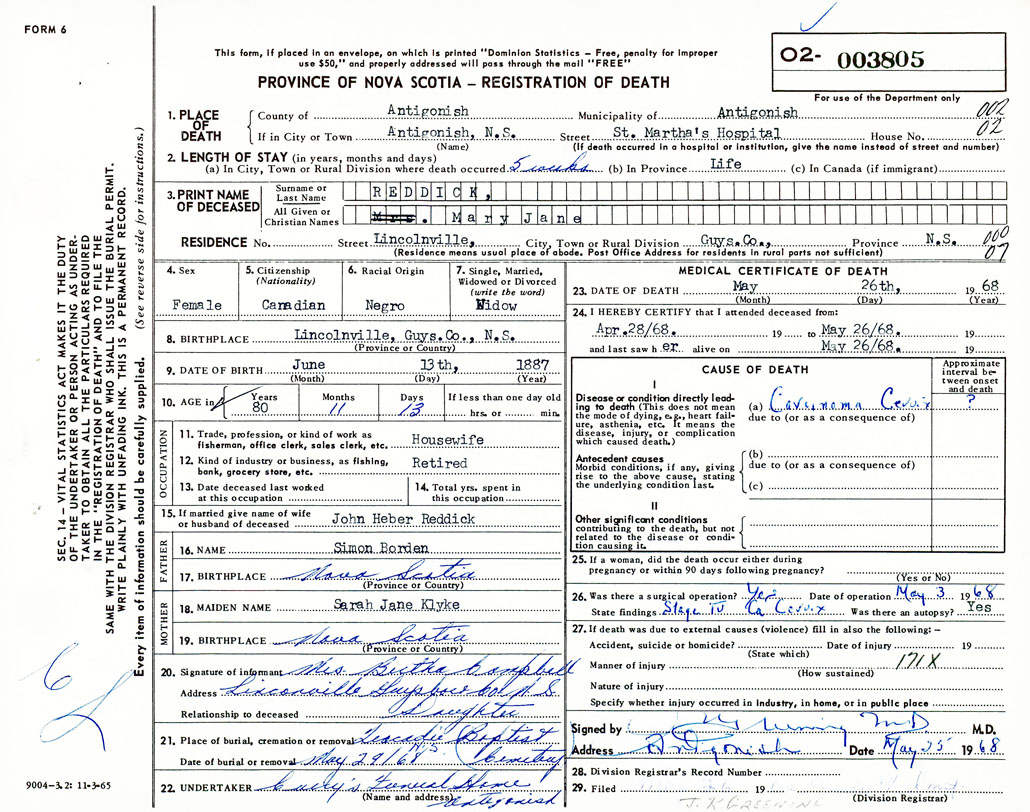 FORM 6
This form, if placed in an envelope, on which is printed "Dominion Statistics – Free, penalty for improper
use $50," and properly addressed will pass through the mail "FREE"
PROVINCE OF NOVA SCOTIA – REGISTRATION OF DEATH
O2- 003805
For use of the Department only
SEC. 14 – VITAL STATISTICS ACT MAKES IT THE DUTY
OF THE UNDERTAKER OR PERSON ACTING AS UNDER-
TAKER TO OBTAIN ALL THE PARTICULARS REQUIRED
IN THE "REGISTRATION OF DEATH" AND TO FILE THE
SAME WITH THE DIVISION REGISTRAR WHO SHALL ISSUE THE BURIAL PERMIT.
WRITE PLAINLY WITH UNFADING INK. THIS IS A PERMANENT RECORD.
Every item of information should be carefully supplied. (See reverse side for instructions.)
1. PLACE OF DEATH
County of Antigonish Municipality of Antigonish 002
If in City or Town Antigonish, N.S. Street St. Martha's Hospital House No. 02
(Name) (If death occurred in a hospital or institution, give the name instead of street and number)
2. LENGTH OF STAY (in years, months and days)
(a) In City, Town or Rural Division where death occurred 5 weeks (b) In Province Life (c) In Canada (if immigrant)
3. PRINT NAME OF DECEASED
Surname or Last Name REDDICK,
All Given or Christian Names Mrs. Mary Jane
RESIDENCE No. Street Lincolnville, City, Town or Rural Division Guys.Co., Province N.S. 000
(Residence means usual place of abode. Post Office Address for residents in rural parts not sufficient) 07
4. Sex
Female
5. Citizenship
(Nationality)
Canadian
6. Racial Origin
Negro
7. Single, Married,
Widowed or Divorced
(write the word)
Widow
8. BIRTHPLACE Lincolnville, Guys.Co., N.S.
(Province or Country)
9. DATE OF BIRTH June 13th, 1887
(Month) (Day) (Year)
10. AGE in Years Months Days If less than one day old
80 11 13 hrs. or min.
OCCUPATION
11. Trade, profession, or kind of work as
fisherman, office clerk, sales clerk, etc. Housewife
12. Kind of industry or business, as fishing,
bank, grocery store, etc. Retired
13. Date deceased last worked
at this occupation
14. Total yrs. spent in
this occupation
15. If married give name of wife
or husband of deceased John Heber Reddick
FATHER
16. NAME Simon Borden
17. BIRTHPLACE Nova Scotia
(Province or Country)
MOTHER
18. MAIDEN NAME Sarah Jane Klyke
19. BIRTHPLACE Nova Scotia
(Province or Country)
20. Signature of informant Mrs. Bertha Campbell
Address Linconville Guysboro Co N.S.
Relationship to deceased Daughter
21. Place of burial, cremation or removal Tracadie Baptist
Date of burial or removal May 29/68 N.S. Cemetery
22. UNDERTAKER Funeral Home
(Name and address) Antigonish
9004–3.2: 11-3-65
MEDICAL CERTIFICATE OF DEATH
23. DATE OF DEATH May 26th, 19 68
(Month) (Day) (Year)
24. I HEREBY CERTIFY that I attended deceased from:
Apr.28/68. 19 to May 26/68. 19
and last saw h er alive on May 26/68. 19
CAUSE OF DEATH
Approximate
interval be-
tween onset
and death
I
Disease or condition directly lead-
ing to death (This does not mean
the mode of dying, e.g., heart fail-
ure, asthenia, etc. It means the
disease, injury, or complication
which caused death.)
(a) Cervix ?
due to (or as a consequence of)
Antecedent causes
Morbid conditions, if any, giving
rise to the above cause, stating
the underlying condition last.
(b)
due to (or as a consequence of)
(c)
II
Other significant conditions
contributing to the death, but not
related to the disease or condi-
tion causing it.
25. If a woman, did the death occur either during
pregnancy or within 90 days following pregnancy?
(Yes or No)
26. Was there a surgical operation? Yes Date of operation May 3 19 68
State findings Stage IV Ca Cervix Was there an autopsy? Yes
27. If death was due to external causes (violence) fill in also the following: –
Accident, suicide or homicide? Date of injury 19
(State which)
Manner of injury 171X
(How sustained)
Nature of injury
Specify whether injury occurred in industry, in home, or in public place
Signed by MD M.D.
Address Antigonish Date May 25 19 68
28. Division Registrar's Record Number
29. Filed 19
(Division Registrar)